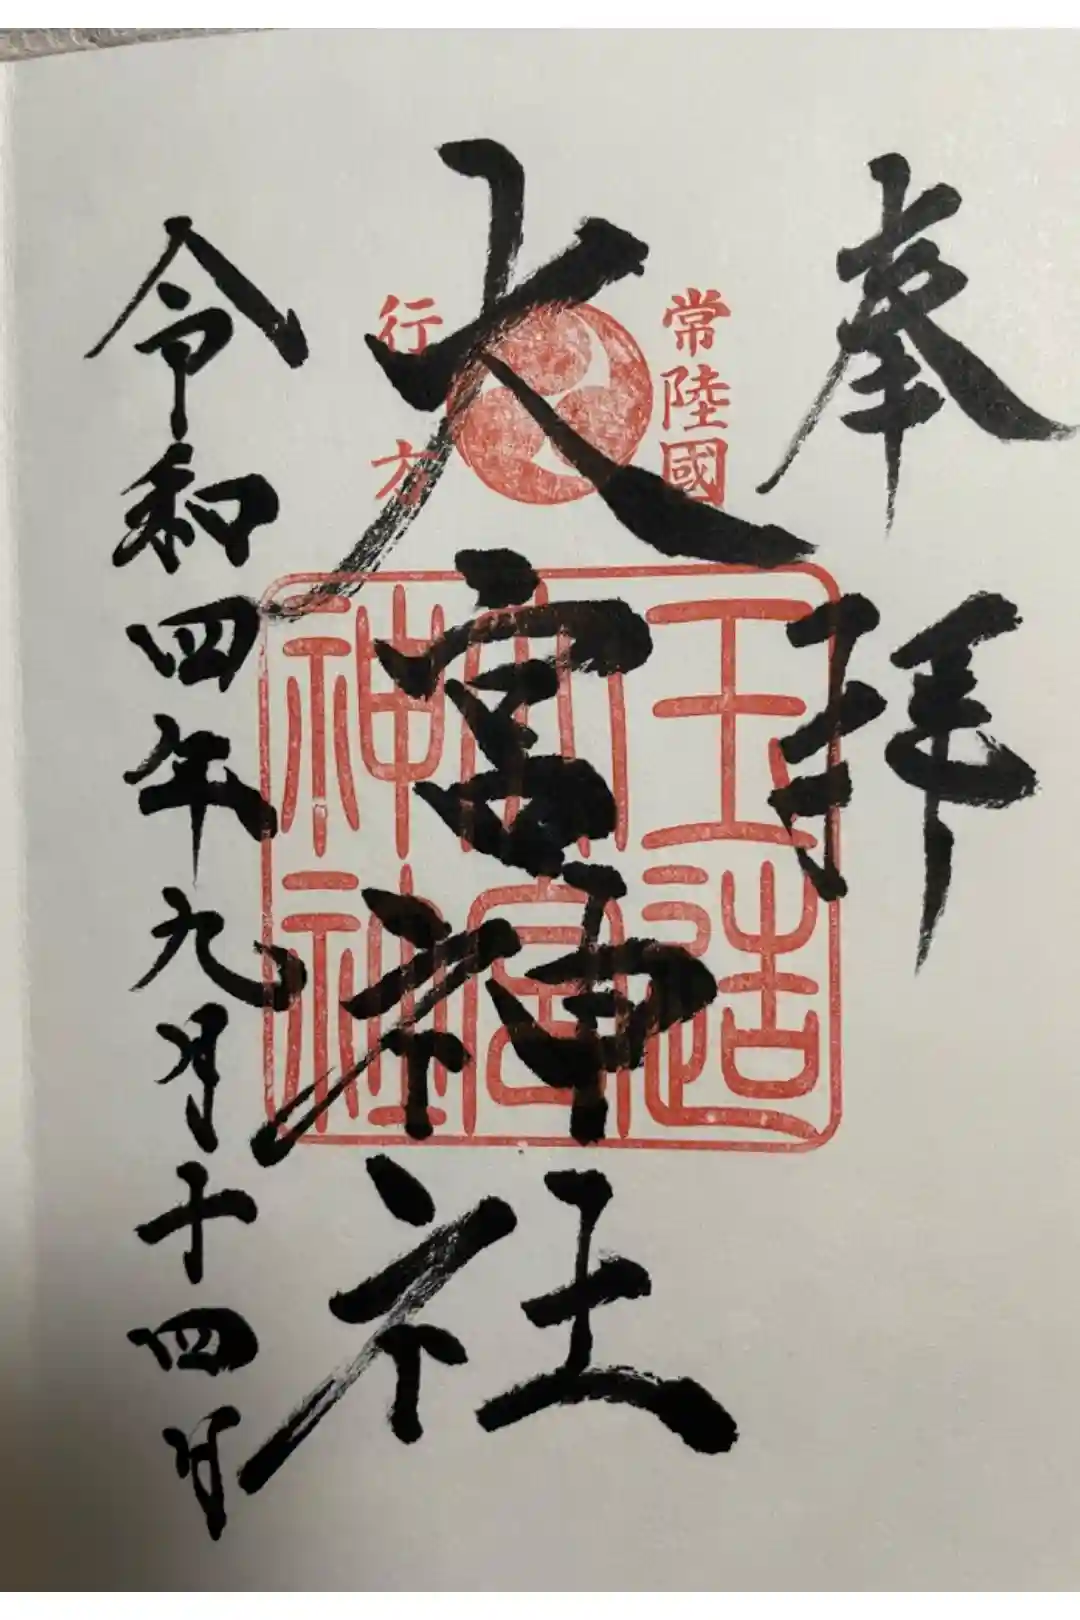 奉拝
常陸國
行方
大宮神社
玉造
大宮
神社
令和四年九月十四日